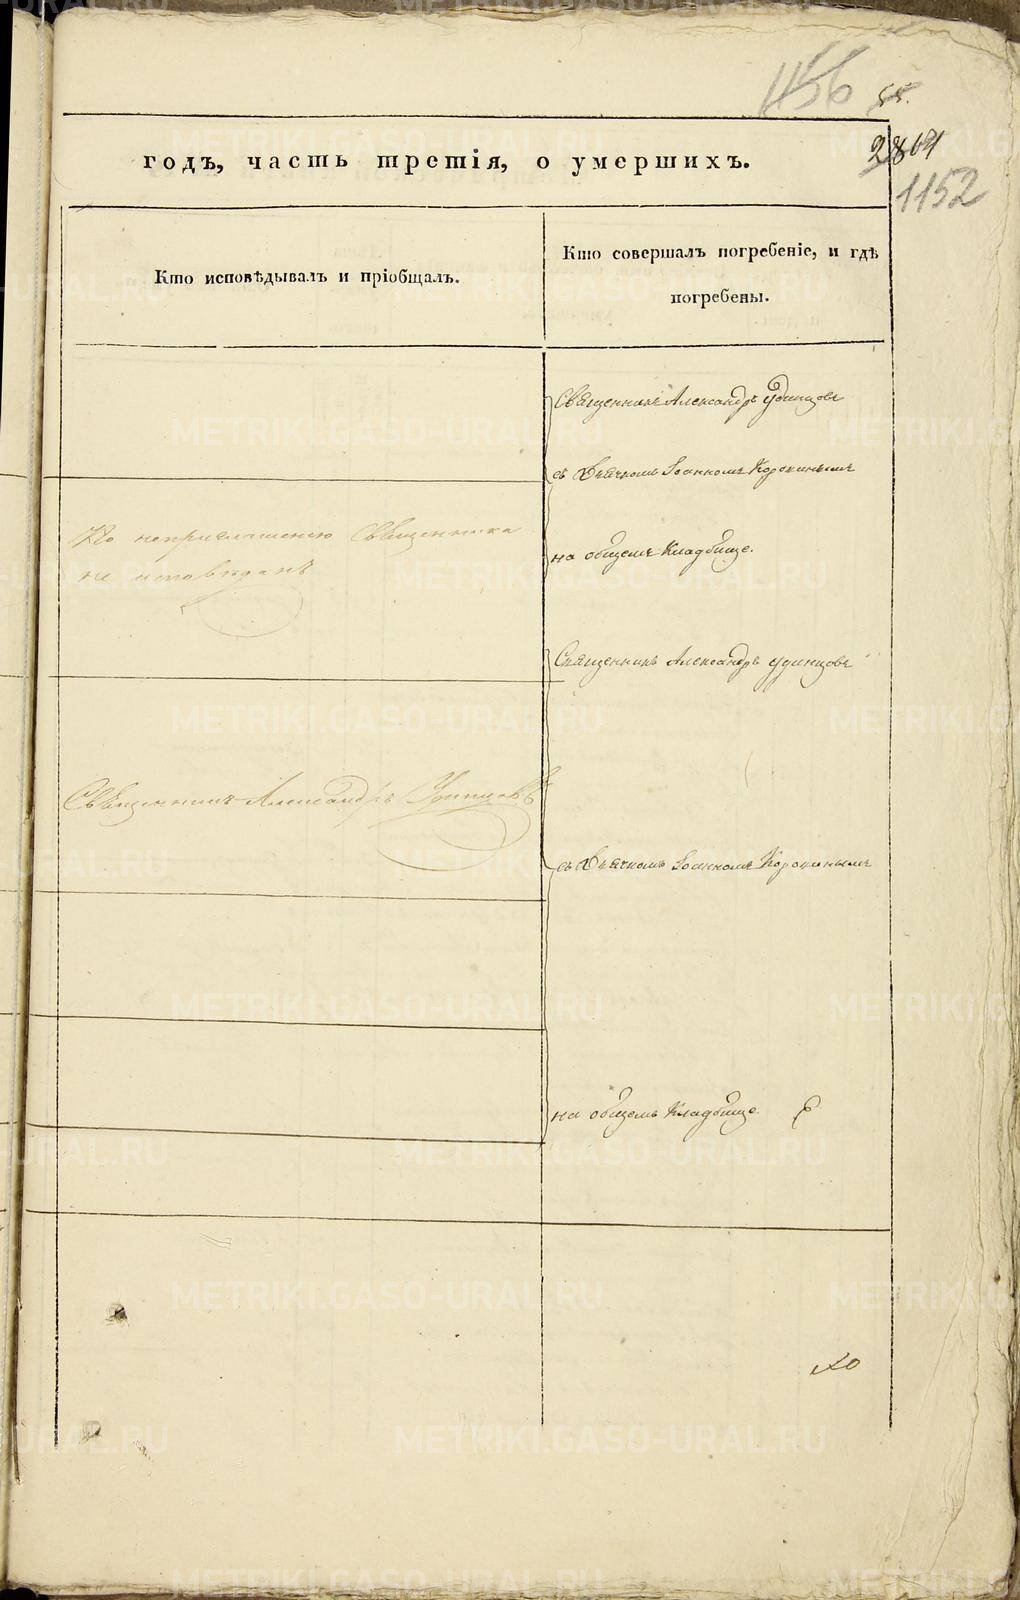 1156 55.
годъ, часть третія, о умершихъ.
2864
1152
Кто исповѣдывалъ и пріобщалъ.
Кто совершалъ погребеніе, и гдѣ
погребены.
Священникъ Александръ Удинцовъ
съ Дьячкомъ Іоанномъ Корокинымъ
По неприглашению Священника
не исповѣданъ
на общемъ Кладбище.
Священникъ Александръ Удинцовъ
Священникъ Александръ Удинцовъ
съ Дьячкомъ Іоанномъ Корокинымъ
на общемъ Кладбище.
METRIKI.GASO-URAL.RU